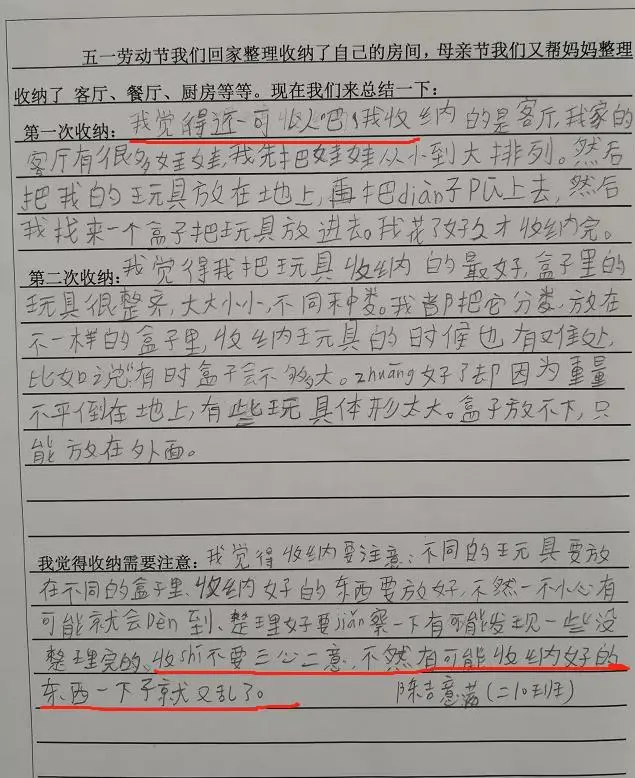 五一劳动节我们回家整理收纳了自己的房间，母亲节我们又帮妈妈整理
收纳了 客厅、餐厅、厨房等等。现在我们来总结一下：
第一次收纳：我觉得还可以吧！我收纳的是客厅，我家的
客厅有很多娃娃，我先把娃娃从小到大排列。然后
把我的玩具放在地上，再把diàn子PU上去，然后
我找来一个盒子把玩具放进去。我花了好久才收纳完。
第二次收纳：我觉得我把玩具收纳的最好，盒子里的
玩具很整齐，大大小小，不同种类。我都把它分类，放在
不一样的盒子里，收纳玩具的时候也有难处，
比如说：有时盒子会不够大。zhuāng好了却因为重量
不平倒在地上，有些玩具体形太大。盒子放不下，只
能放在外面。
我觉得收纳需要注意：我觉得收纳要注意：不同的玩具要放
在不同的盒子里、收纳好的东西要放好，不然一不小心有
可能就会pèn到、整理好要jiǎn察一下有可能发现一些没
整理完的、收shi不要三心二意，不然有可能收纳好的
东西一下子就又乱了。 陈吉意满(二10班)